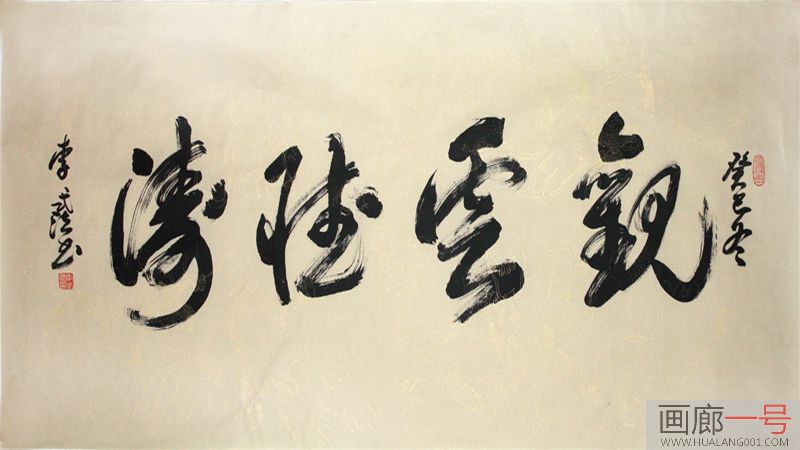 癸巳冬
觀雲聽濤
李
書
画廊一号
WWW.HUALANG001.COM